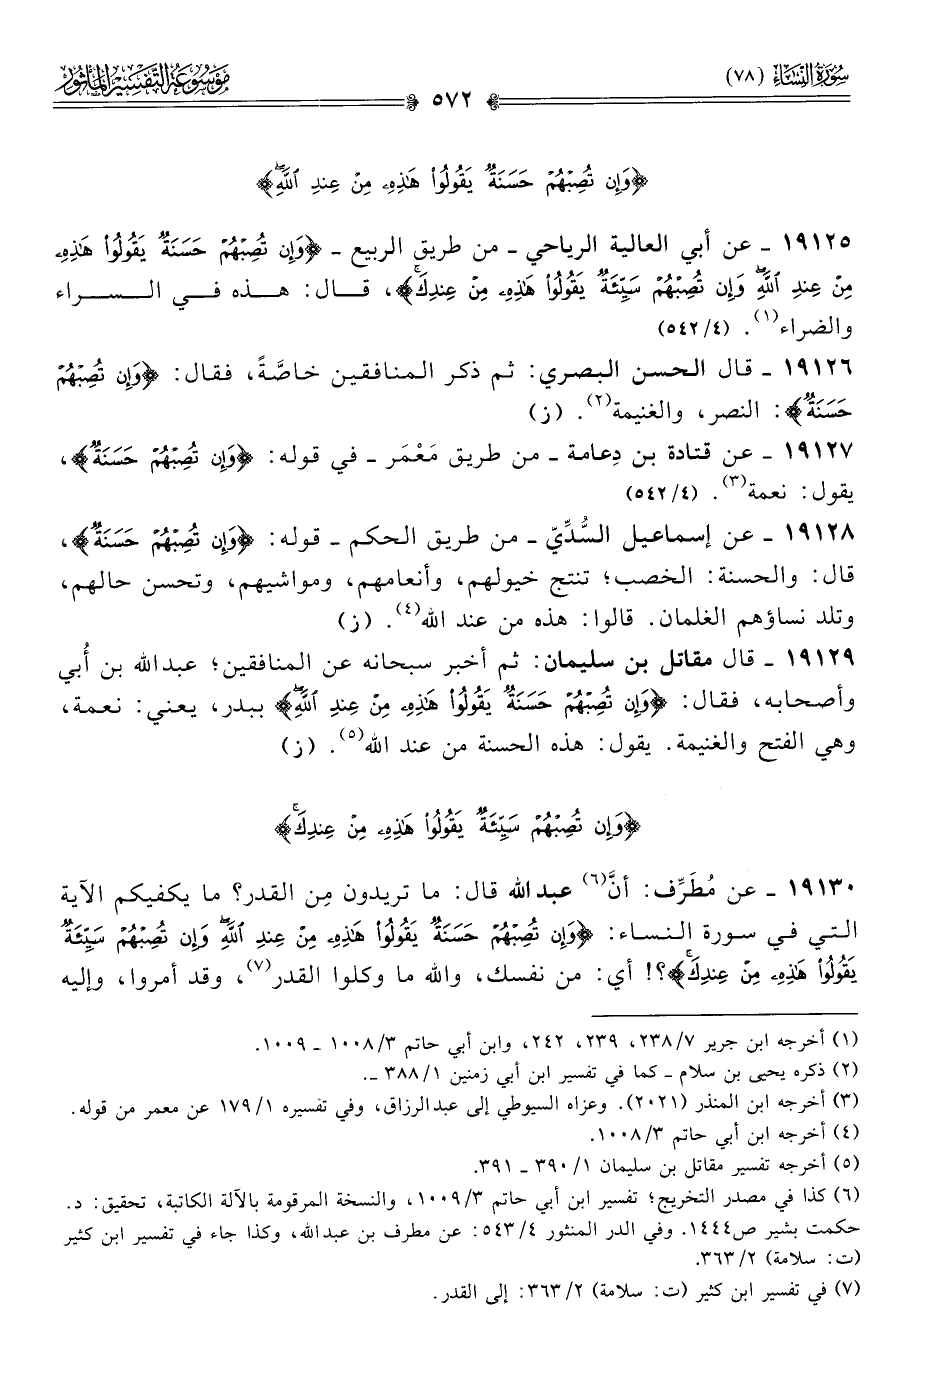 سُورَةُ النِّسَاء (٧٨)
موسوعة التفسير المأثور
٥٧٢
﴿وَإِن تُصِبْهُمْ حَسَنَةٌ يَقُولُوا۟ هَٰذِهِۦ مِنْ عِندِ ٱللَّهِۖ﴾
١٩١٢٥ ـ عن أبي العالية الرياحي ـ من طريق الربيع ـ ﴿وَإِن تُصِبْهُمْ حَسَنَةٌ يَقُولُوا۟ هَٰذِهِۦ
مِنْ عِندِ ٱللَّهِۖ وَإِن تُصِبْهُمْ سَيِّئَةٌ يَقُولُوا۟ هَٰذِهِۦ مِنْ عِندِكَۚ﴾، قال: هذه في السراء
والضراء(١). (٤/٥٤٢)
١٩١٢٦ ـ قال الحسن البصري: ثم ذكر المنافقين خاصَّةً، فقال: ﴿وَإِن تُصِبْهُمْ
حَسَنَةٌ﴾: النصر، والغنيمة(٢). (ز)
١٩١٢٧ ـ عن قتادة بن دِعامة ـ من طريق مَعْمَر ـ في قوله: ﴿وَإِن تُصِبْهُمْ حَسَنَةٌ﴾،
يقول: نعمة(٣). (٤/٥٤٢)
١٩١٢٨ ـ عن إسماعيل السُّدِّيّ ـ من طريق الحكم ـ قوله: ﴿وَإِن تُصِبْهُمْ حَسَنَةٌ﴾،
قال: والحسنة: الخصب؛ تنتج خيولهم، وأنعامهم، ومواشيهم، وتحسن حالهم،
وتلد نساؤهم الغلمان. قالوا: هذه من عند الله(٤). (ز)
١٩١٢٩ ـ قال مقاتل بن سليمان: ثم أخبر سبحانه عن المنافقين؛ عبدالله بن أُبي
وأصحابه، فقال: ﴿وَإِن تُصِبْهُمْ حَسَنَةٌ يَقُولُوا۟ هَٰذِهِۦ مِنْ عِندِ ٱللَّهِۖ﴾ ببدر، يعني: نعمة،
وهي الفتح والغنيمة. يقول: هذه الحسنة من عند الله(٥). (ز)
﴿وَإِن تُصِبْهُمْ سَيِّئَةٌ يَقُولُوا۟ هَٰذِهِۦ مِنْ عِندِكَۚ﴾
١٩١٣٠ ـ عن مُطَرِّف: أنَّ(٦) عبدالله قال: ما تريدون مِن القدر؟ ما يكفيكم الآية
التي في سورة النساء: ﴿وَإِن تُصِبْهُمْ حَسَنَةٌ يَقُولُوا۟ هَٰذِهِۦ مِنْ عِندِ ٱللَّهِۖ وَإِن تُصِبْهُمْ سَيِّئَةٌ
يَقُولُوا۟ هَٰذِهِۦ مِنْ عِندِكَۚ﴾؟! أي: من نفسك، والله ما وكلوا القدر(٧)، وقد أمروا، وإليه
(١) أخرجه ابن جرير ٧/٢٣٨، ٢٣٩، ٢٤٢، وابن أبي حاتم ٣/١٠٠٨ ـ ١٠٠٩.
(٢) ذكره يحيى بن سلام ـ كما في تفسير ابن أبي زمنين ١/٣٨٨ ـ.
(٣) أخرجه ابن المنذر (٢٠٢١). وعزاه السيوطي إلى عبدالرزاق، وفي تفسيره ١/١٧٩ عن معمر من قوله.
(٤) أخرجه ابن أبي حاتم ٣/١٠٠٨.
(٥) أخرجه تفسير مقاتل بن سليمان ١/٣٩٠ ـ ٣٩١.
(٦) كذا في مصدر التخريج؛ تفسير ابن أبي حاتم ٣/١٠٠٩، والنسخة المرقومة بالآلة الكاتبة، تحقيق: د.
حكمت بشير ص١٤٤٤. وفي الدر المنثور ٤/٥٤٣: عن مطرف بن عبدالله، وكذا جاء في تفسير ابن كثير
(ت: سلامة) ٢/٣٦٣.
(٧) في تفسير ابن كثير (ت: سلامة) ٢/٣٦٣: إلى القدر.